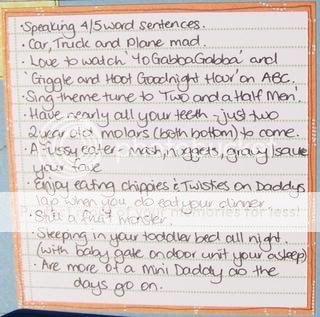 • Speaking 4/5 word sentences.
• Car, Truck and Plane mad.
• Love to watch 'YoGabbaGabba' and
'Giggle and Hoot Goodnight Hour' on ABC.
• Sing theme tune to 'Two and a Half Men'.
• Have nearly all your teeth - just two
2 year old molars (both bottom) to come.
• A fussy eater - mash, nuggets, gravy/sauce
your fave
• Enjoy eating chippies & Twisties on Daddys
lap when you do eat your dinner
• Still a fruit monster.
• Sleeping in your toddler bed all night.
(with baby gate on door until your asleep)
• Are more of a mini Daddy as the
days go on.